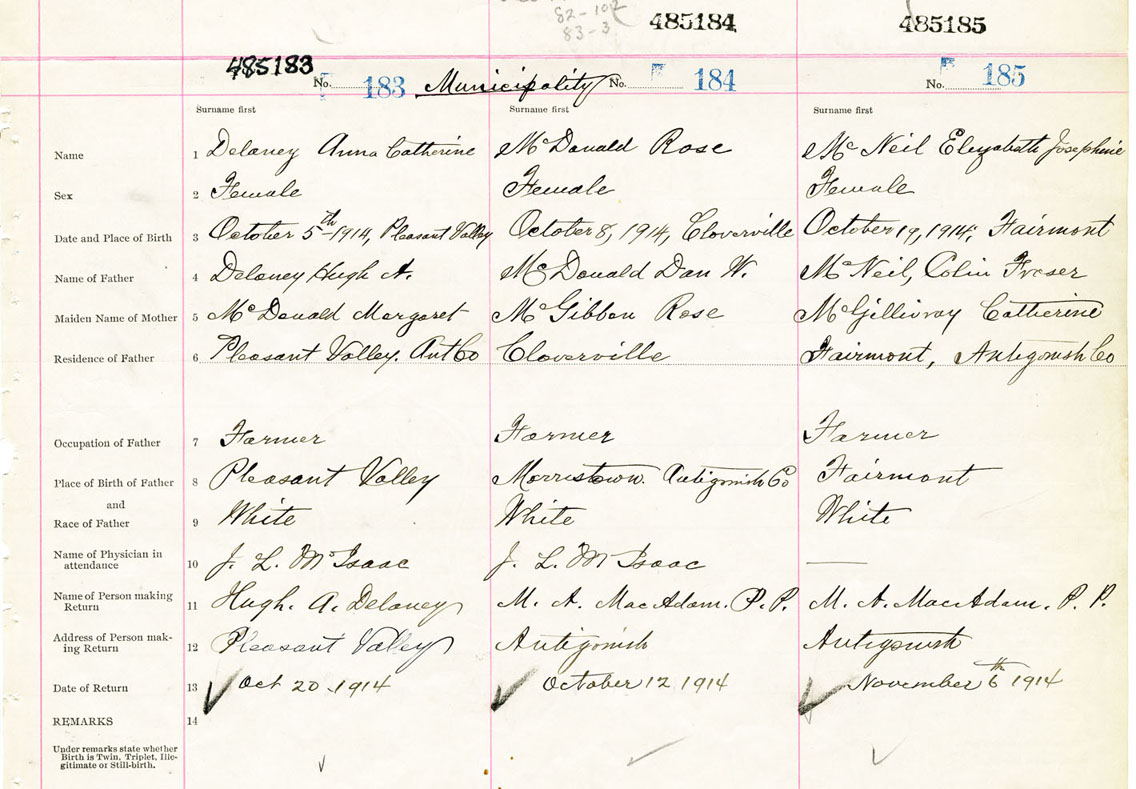 82-102
83-3
485184
485185
485183
No. 183 Municipality No. 184 No. 185
Surname first Surname first Surname first
Name 1 Delaney Anna Catherine McDonald Rose McNeil Elizabeth Josephine
Sex 2 Female Female Female
Date and Place of Birth 3 October 5th 1914, Pleasant Valley October 8, 1914, Cloverville October 19, 1914, Fairmont
Name of Father 4 Delaney Hugh A. McDonald Dan W. McNeil, Colin Fraser
Maiden Name of Mother 5 McDonald Margaret McGibbon Rose McGillivray Catherine
Residence of Father 6 Pleasant Valley. Ant Co Cloverville Fairmont, Antigonish Co
Occupation of Father 7 Farmer Farmer Farmer
Place of Birth of Father 8 Pleasant Valley Morristown. Antigonish Co Fairmont
and
Race of Father 9 White White White
Name of Physician in
attendance 10 J. L. McIsaac J. L. McIsaac —
Name of Person making
Return 11 Hugh. A. Delaney M. A. MacAdam. P.P. M. A. MacAdam. P. P.
Address of Person mak-
ing Return 12 Pleasant Valley Antigonish Antigonish
Date of Return 13 Oct 20 - 1914 October 12, 1914 November 6th 1914
REMARKS 14
Under remarks state whether
Birth is Twin, Triplet, Ille-
gitimate or Still-birth.